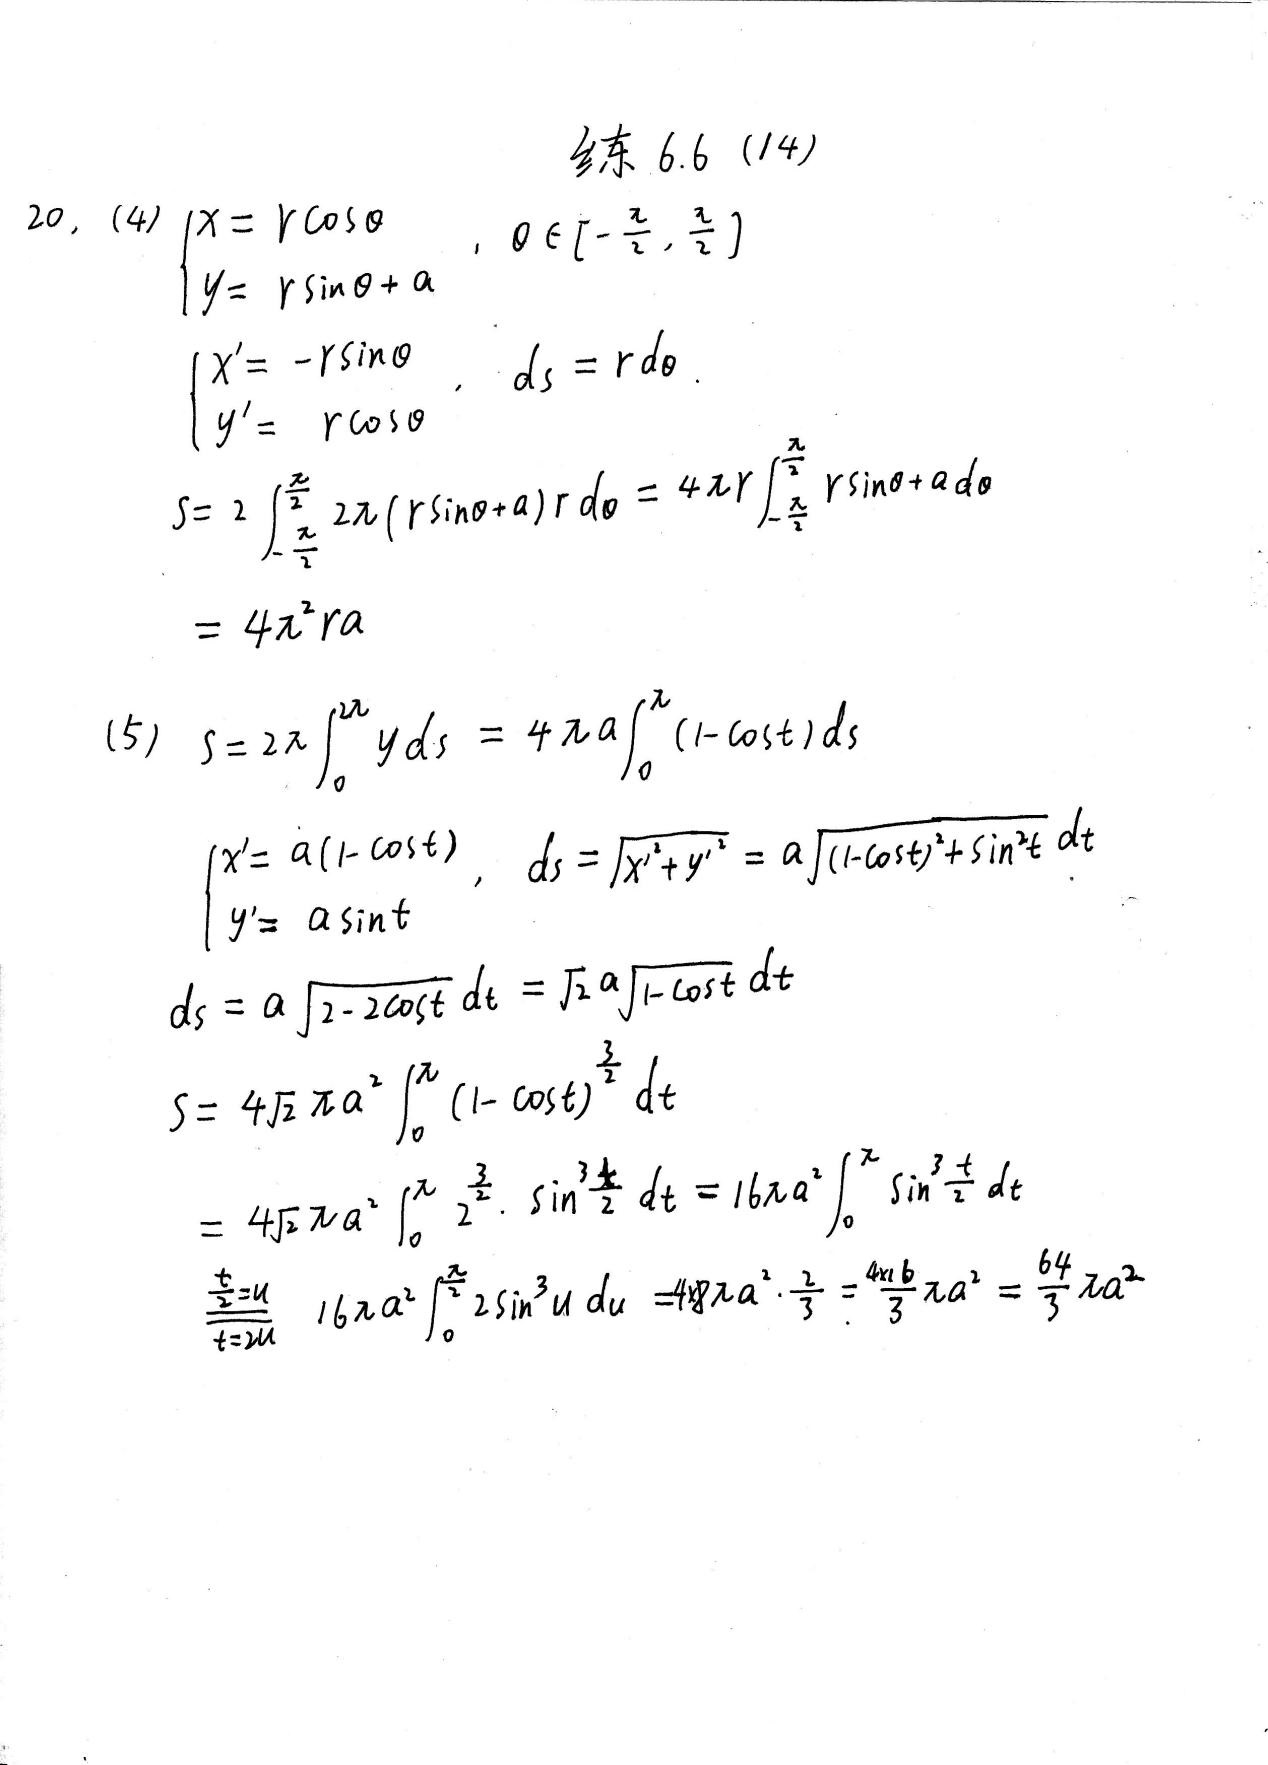 练 6.6 (14)
20, (4) { x = rcosθ , θ∈[-π/2, π/2]
y = rsinθ + a
{ x' = -rsinθ , ds = rdθ.
y' = rcosθ
S = 2∫_{-π/2}^{π/2} 2π(rsinθ+a)rdθ = 4πr∫_{-π/2}^{π/2} rsinθ+adθ
= 4π²ra
(5) S = 2π∫_0^{2π} yds = 4πa∫_0^π (1-cost)ds
{ x' = a(1-cost) , ds = √(x'²+y'²) = a√((1-cost)²+sin²t) dt
y' = asint
ds = a√(2-2cost) dt = √2 a√(1-cost) dt
S = 4√2 πa²∫_0^π (1-cost)^{3/2} dt
= 4√2 πa²∫_0^π 2^{3/2} · sin³ t/2 dt = 16πa²∫_0^π sin³ t/2 dt
t/2=u
t=2u 16πa²∫_0^{π/2} 2sin³u du = 4×8πa² · 2/3 = 4×16/3 πa² = 64/3 πa²